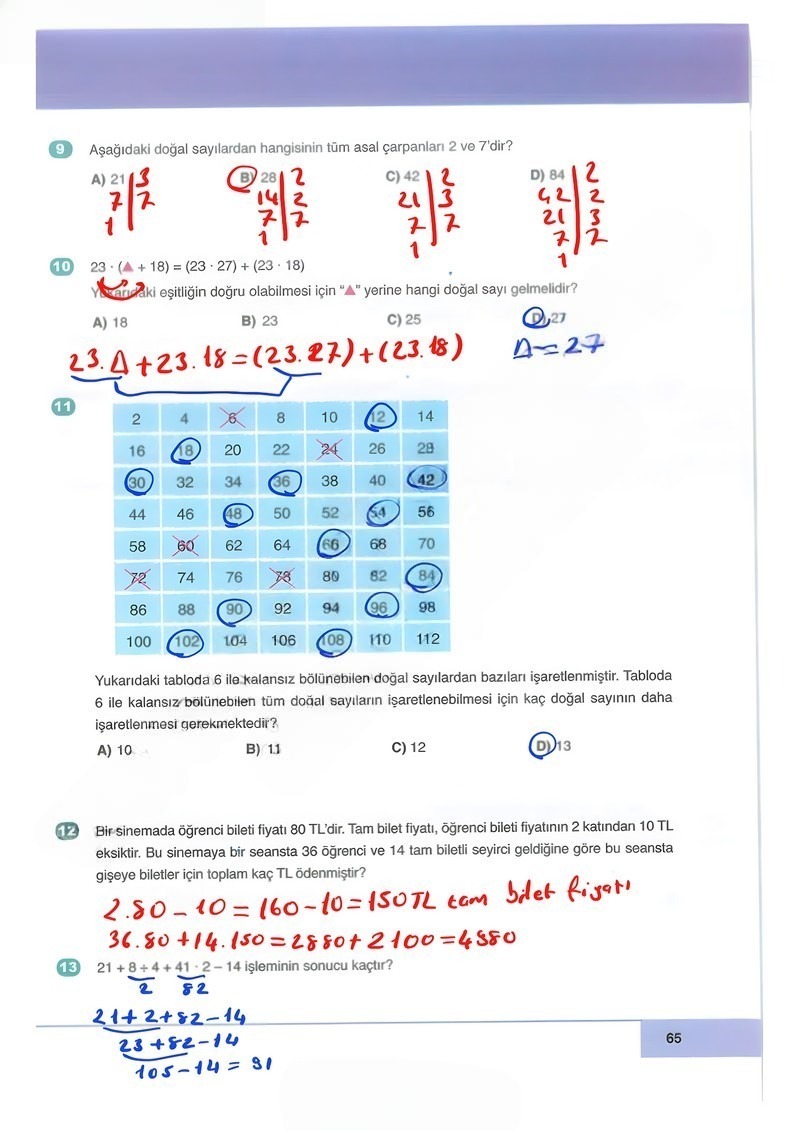 9 Aşağıdaki doğal sayılardan hangisinin tüm asal çarpanları 2 ve 7'dir?
A) 21 B) 28 C) 42 D) 84
3 2 2 2
7 7 14 2 21 3 42 2
1 7 7 7 7 21 3
1 1 7 7
1
10 23 · (▲ + 18) = (23 · 27) + (23 · 18)
Yukarıdaki eşitliğin doğru olabilmesi için “▲” yerine hangi doğal sayı gelmelidir?
A) 18 B) 23 C) 25 D) 27
23.Δ+23.18=(23.27)+(23.18) Δ=27
11
2 4 6 8 10 12 14
16 18 20 22 24 26 28
30 32 34 36 38 40 42
44 46 48 50 52 54 56
58 60 62 64 66 68 70
72 74 76 78 80 82 84
86 88 90 92 94 96 98
100 102 104 106 108 110 112
Yukarıdaki tabloda 6 ile kalansız bölünebilen doğal sayılardan bazıları işaretlenmiştir. Tabloda
6 ile kalansız bölünebilen tüm doğal sayıların işaretlenebilmesi için kaç doğal sayının daha
işaretlenmesi gerekmektedir?
A) 10 B) 11 C) 12 D) 13
12 Bir sinemada öğrenci bileti fiyatı 80 TL'dir. Tam bilet fiyatı, öğrenci bileti fiyatının 2 katından 10 TL
eksiktir. Bu sinemaya bir seansta 36 öğrenci ve 14 tam biletli seyirci geldiğine göre bu seansta
gişeye biletler için toplam kaç TL ödenmiştir?
2.80-10=160-10=150TL tam bilet fiyatı
36.80+14.150=2880+2100=4980
13 21 + 8 ÷ 4 + 41 · 2 – 14 işleminin sonucu kaçtır?
2 82
21+2+82-14
23+82-14
105-14=91
65